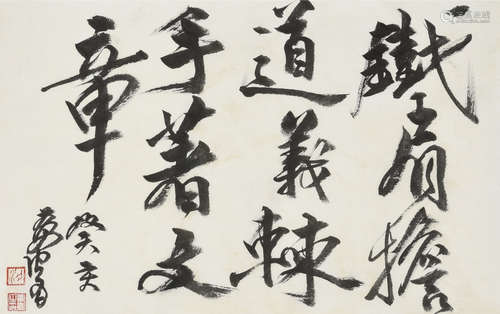 鐵肩擔
道義棘
手著文
章
癸亥